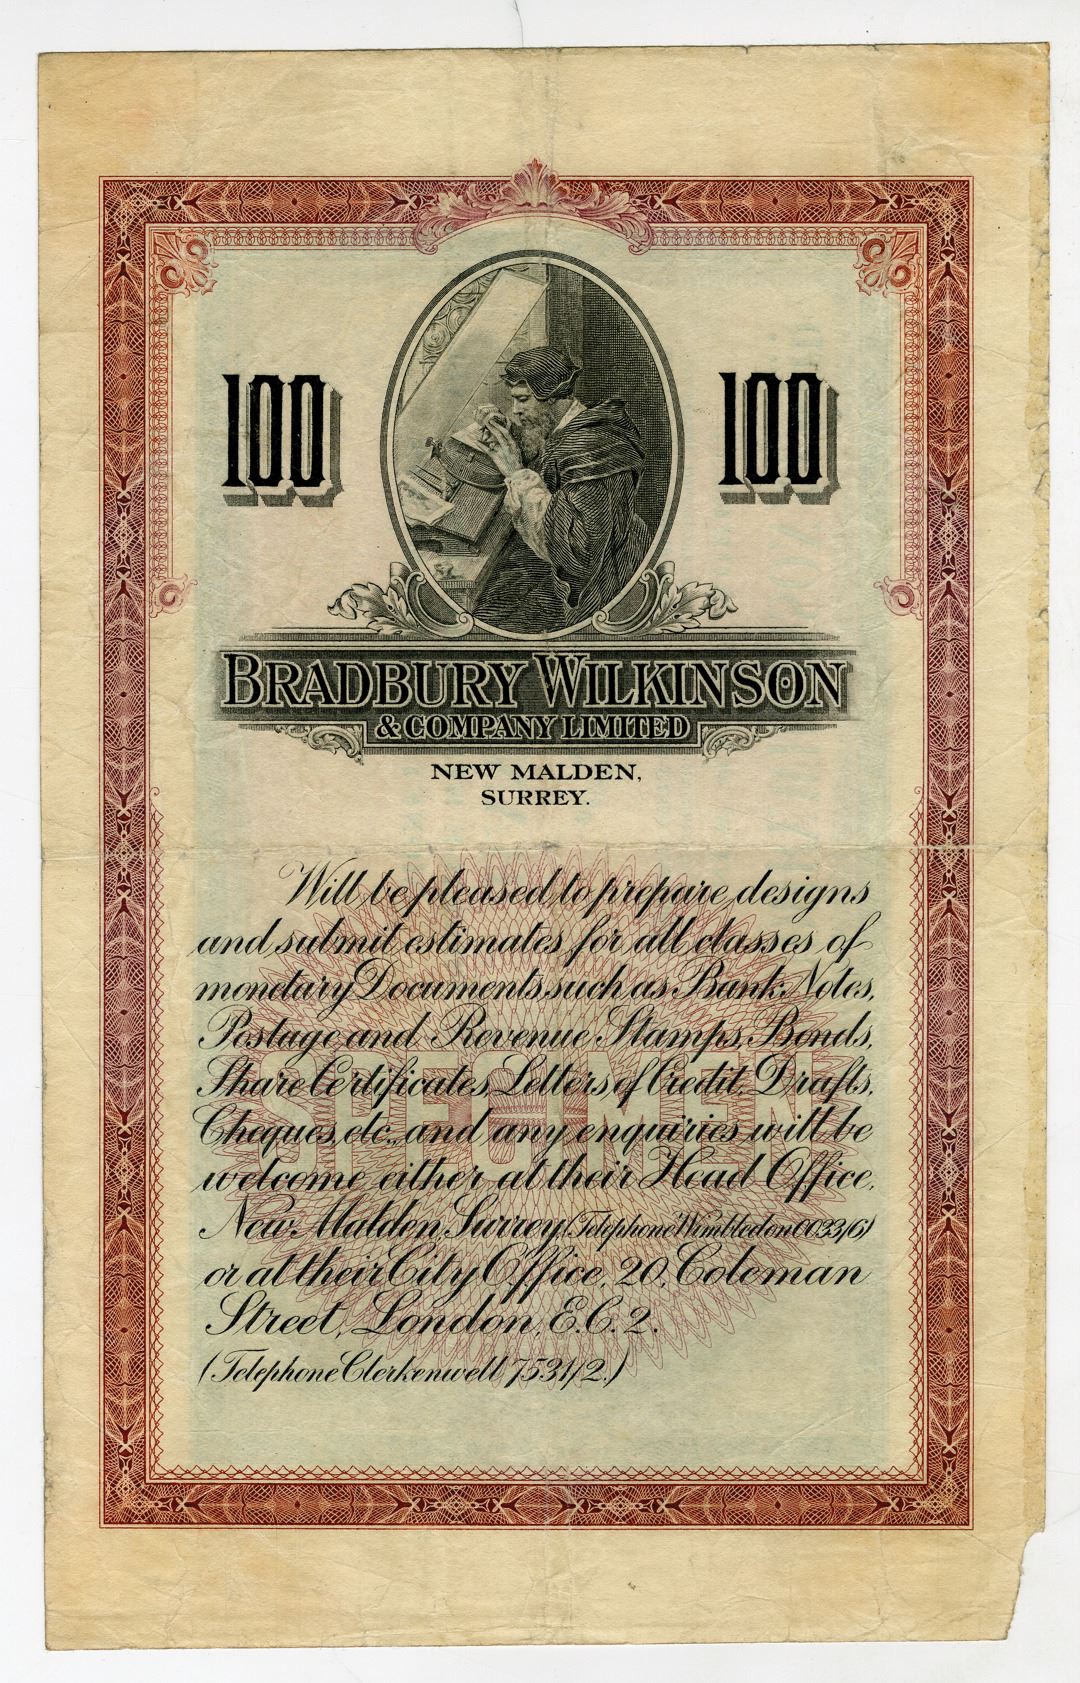 100 100
BRADBURY WILKINSON
& COMPANY LIMITED
NEW MALDEN,
SURREY.
Will be pleased to prepare designs
and submit estimates for all classes of
monetary Documents, such as Bank Notes,
Postage and Revenue Stamps, Bonds,
Share Certificates, Letters of Credit, Drafts,
SPECIMEN
Cheques, etc., and any enquiries will be
welcome either at their Head Office,
New Malden, Surrey (Telephone Wimbledon 0033/6)
or at their City Office, 20, Coleman
Street, London, E.C. 2.
(Telephone Clerkenwell 7531/2.)